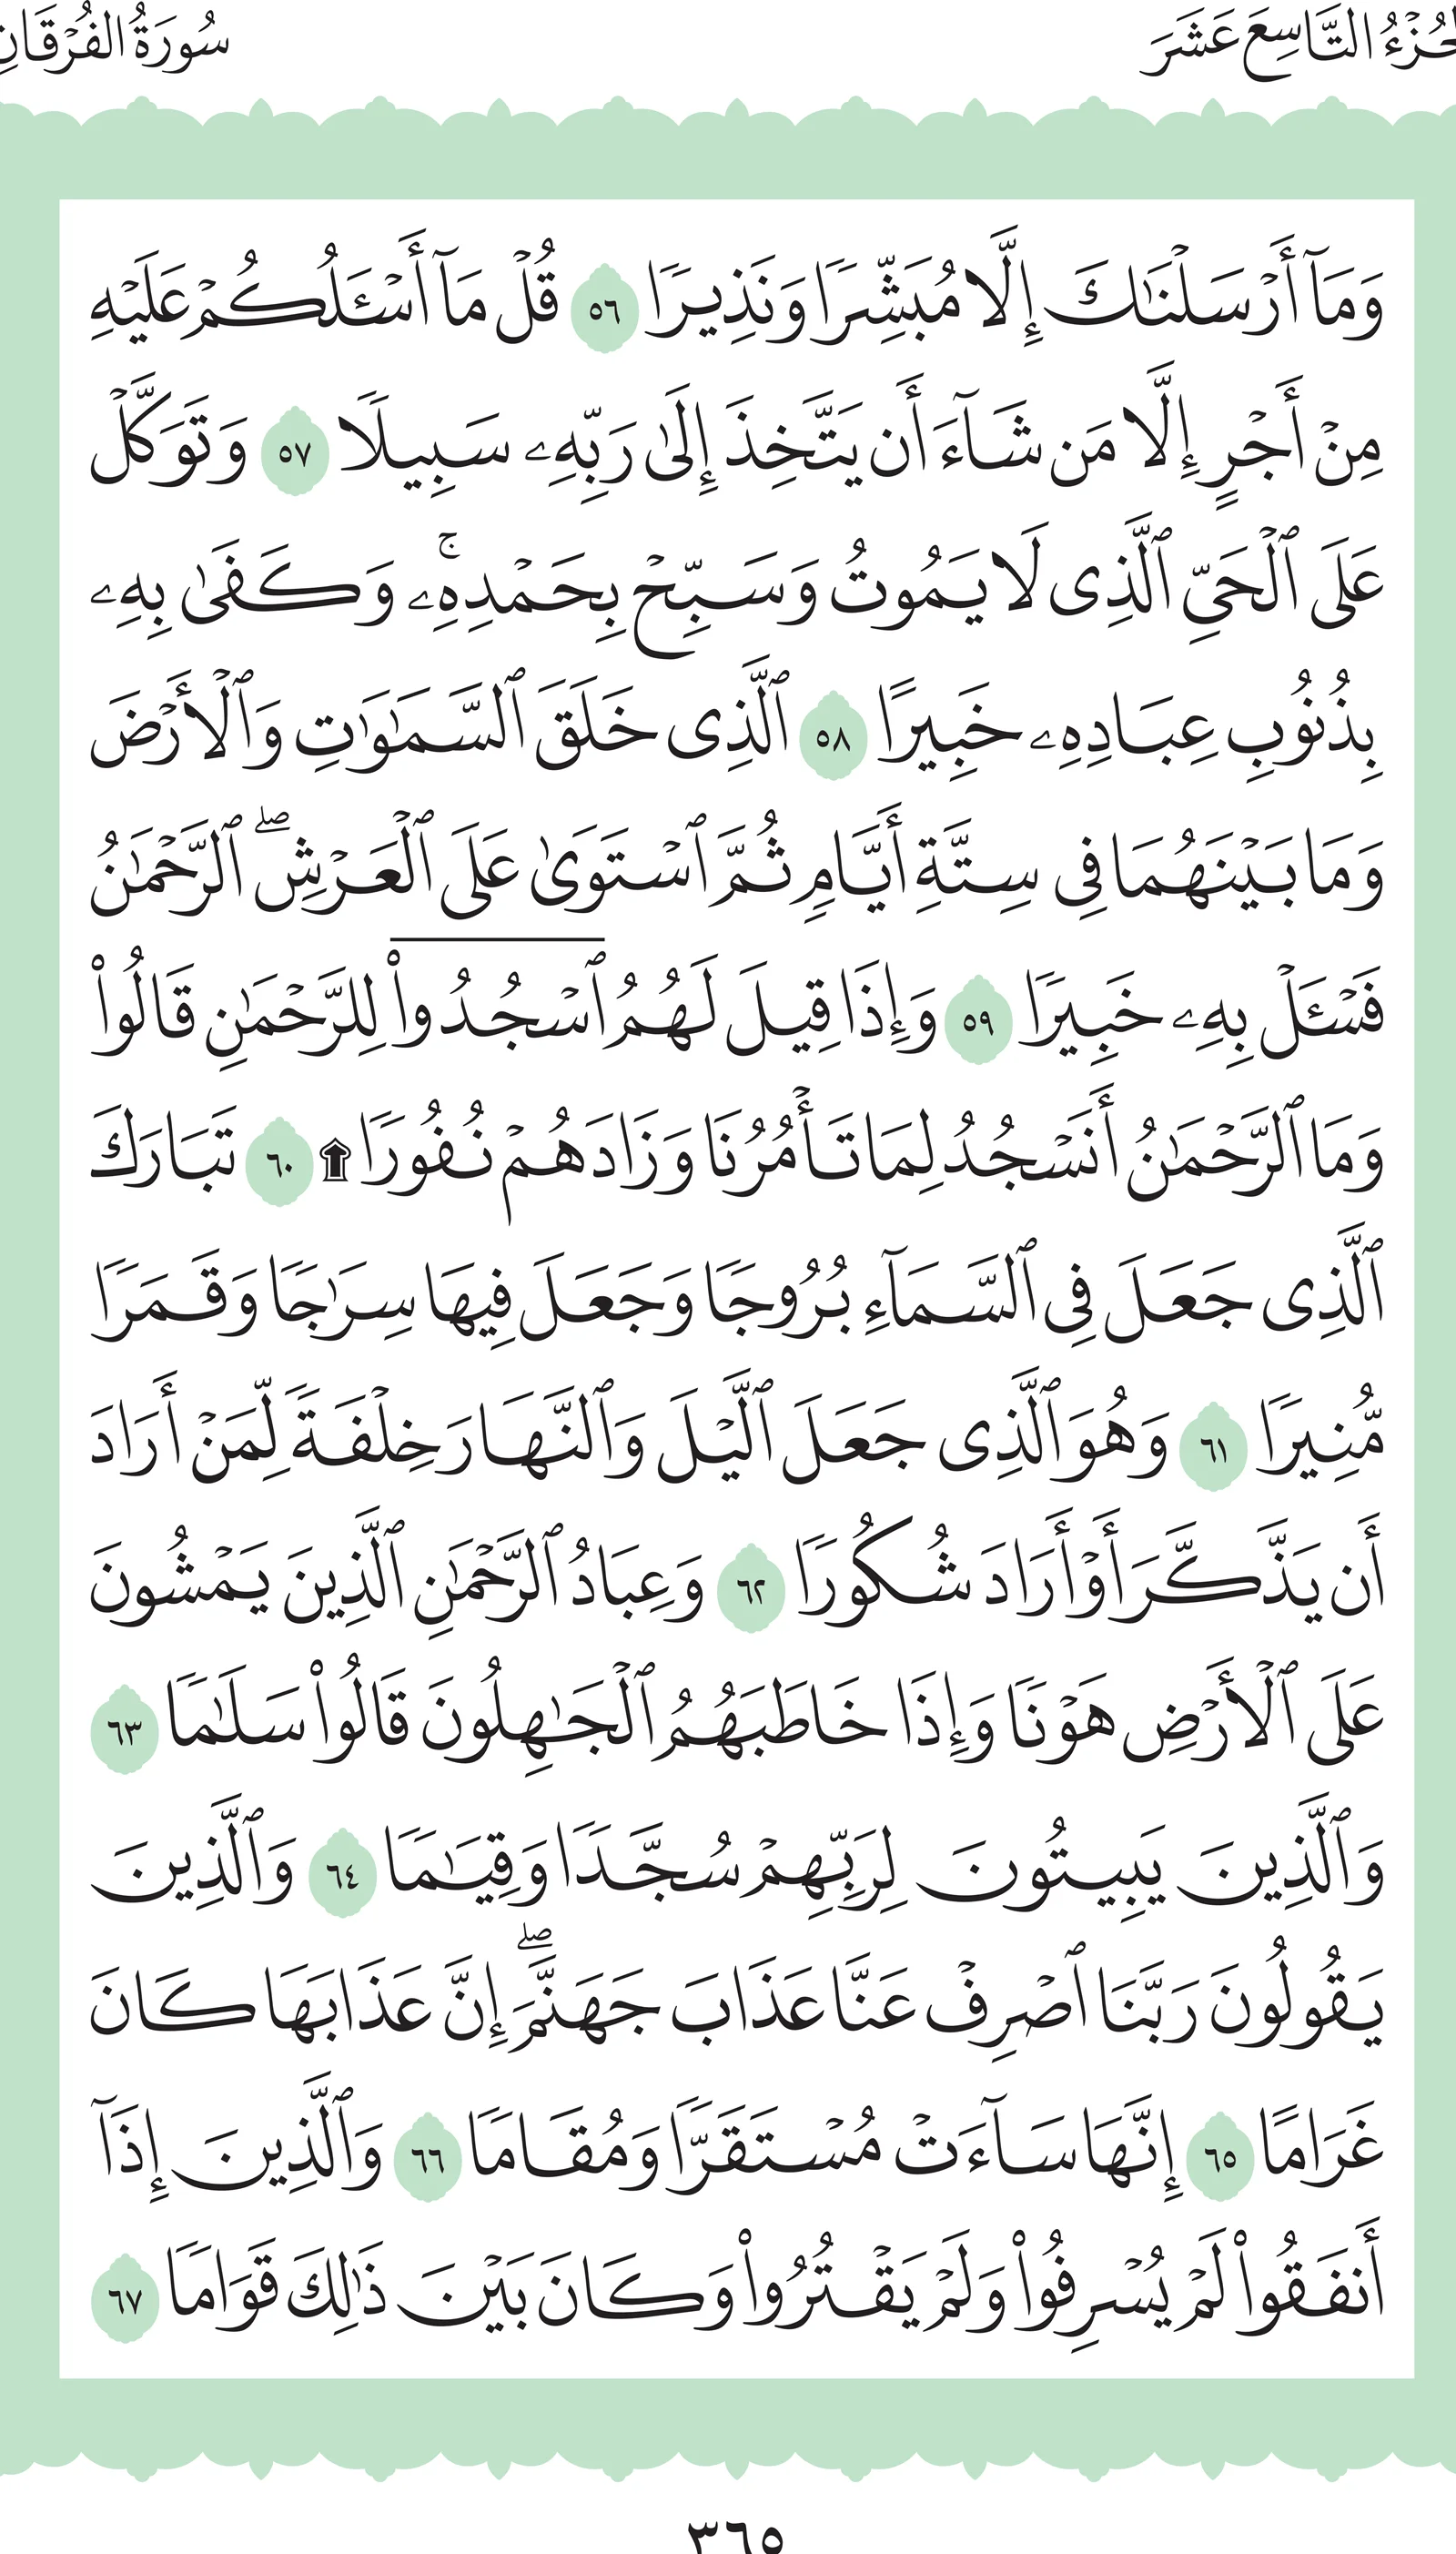 الجُزْءُ التَّاسِعَ عَشَرَ
سُورَةُ الفُرْقَانِ
وَمَآ أَرْسَلْنَٰكَ إِلَّا مُبَشِّرًا وَنَذِيرًا ٥٦ قُلْ مَآ أَسْـَٔلُكُمْ عَلَيْهِ
مِنْ أَجْرٍ إِلَّا مَن شَآءَ أَن يَتَّخِذَ إِلَىٰ رَبِّهِۦ سَبِيلًا ٥٧ وَتَوَكَّلْ
عَلَى ٱلْحَىِّ ٱلَّذِى لَا يَمُوتُ وَسَبِّحْ بِحَمْدِهِۦ ۚ وَكَفَىٰ بِهِۦ
بِذُنُوبِ عِبَادِهِۦ خَبِيرًا ٥٨ ٱلَّذِى خَلَقَ ٱلسَّمَٰوَٰتِ وَٱلْأَرْضَ
وَمَا بَيْنَهُمَا فِى سِتَّةِ أَيَّامٍ ثُمَّ ٱسْتَوَىٰ عَلَى ٱلْعَرْشِ ۖ ٱلرَّحْمَٰنُ
فَسْـَٔلْ بِهِۦ خَبِيرًا ٥٩ وَإِذَا قِيلَ لَهُمُ ٱسْجُدُوا۟ لِلرَّحْمَٰنِ قَالُوا۟
وَمَا ٱلرَّحْمَٰنُ أَنَسْجُدُ لِمَا تَأْمُرُنَا وَزَادَهُمْ نُفُورًا ۩ ٦٠ تَبَارَكَ
ٱلَّذِى جَعَلَ فِى ٱلسَّمَآءِ بُرُوجًا وَجَعَلَ فِيهَا سِرَٰجًا وَقَمَرًا
مُّنِيرًا ٦١ وَهُوَ ٱلَّذِى جَعَلَ ٱلَّيْلَ وَٱلنَّهَارَ خِلْفَةً لِّمَنْ أَرَادَ
أَن يَذَّكَّرَ أَوْ أَرَادَ شُكُورًا ٦٢ وَعِبَادُ ٱلرَّحْمَٰنِ ٱلَّذِينَ يَمْشُونَ
عَلَى ٱلْأَرْضِ هَوْنًا وَإِذَا خَاطَبَهُمُ ٱلْجَٰهِلُونَ قَالُوا۟ سَلَٰمًا ٦٣
وَٱلَّذِينَ يَبِيتُونَ لِرَبِّهِمْ سُجَّدًا وَقِيَٰمًا ٦٤ وَٱلَّذِينَ
يَقُولُونَ رَبَّنَا ٱصْرِفْ عَنَّا عَذَابَ جَهَنَّمَ ۖ إِنَّ عَذَابَهَا كَانَ
غَرَامًا ٦٥ إِنَّهَا سَآءَتْ مُسْتَقَرًّا وَمُقَامًا ٦٦ وَٱلَّذِينَ إِذَآ
أَنفَقُوا۟ لَمْ يُسْرِفُوا۟ وَلَمْ يَقْتُرُوا۟ وَكَانَ بَيْنَ ذَٰلِكَ قَوَامًا ٦٧
٣٦٥